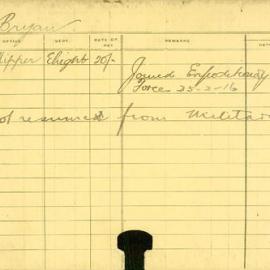 Bryan.
OFFICE. DEPT. RATE OF PAY REMARKS
lipper Elight 20/-
Joined Expeditionary
Force 25-2-16
of resumed from Militar